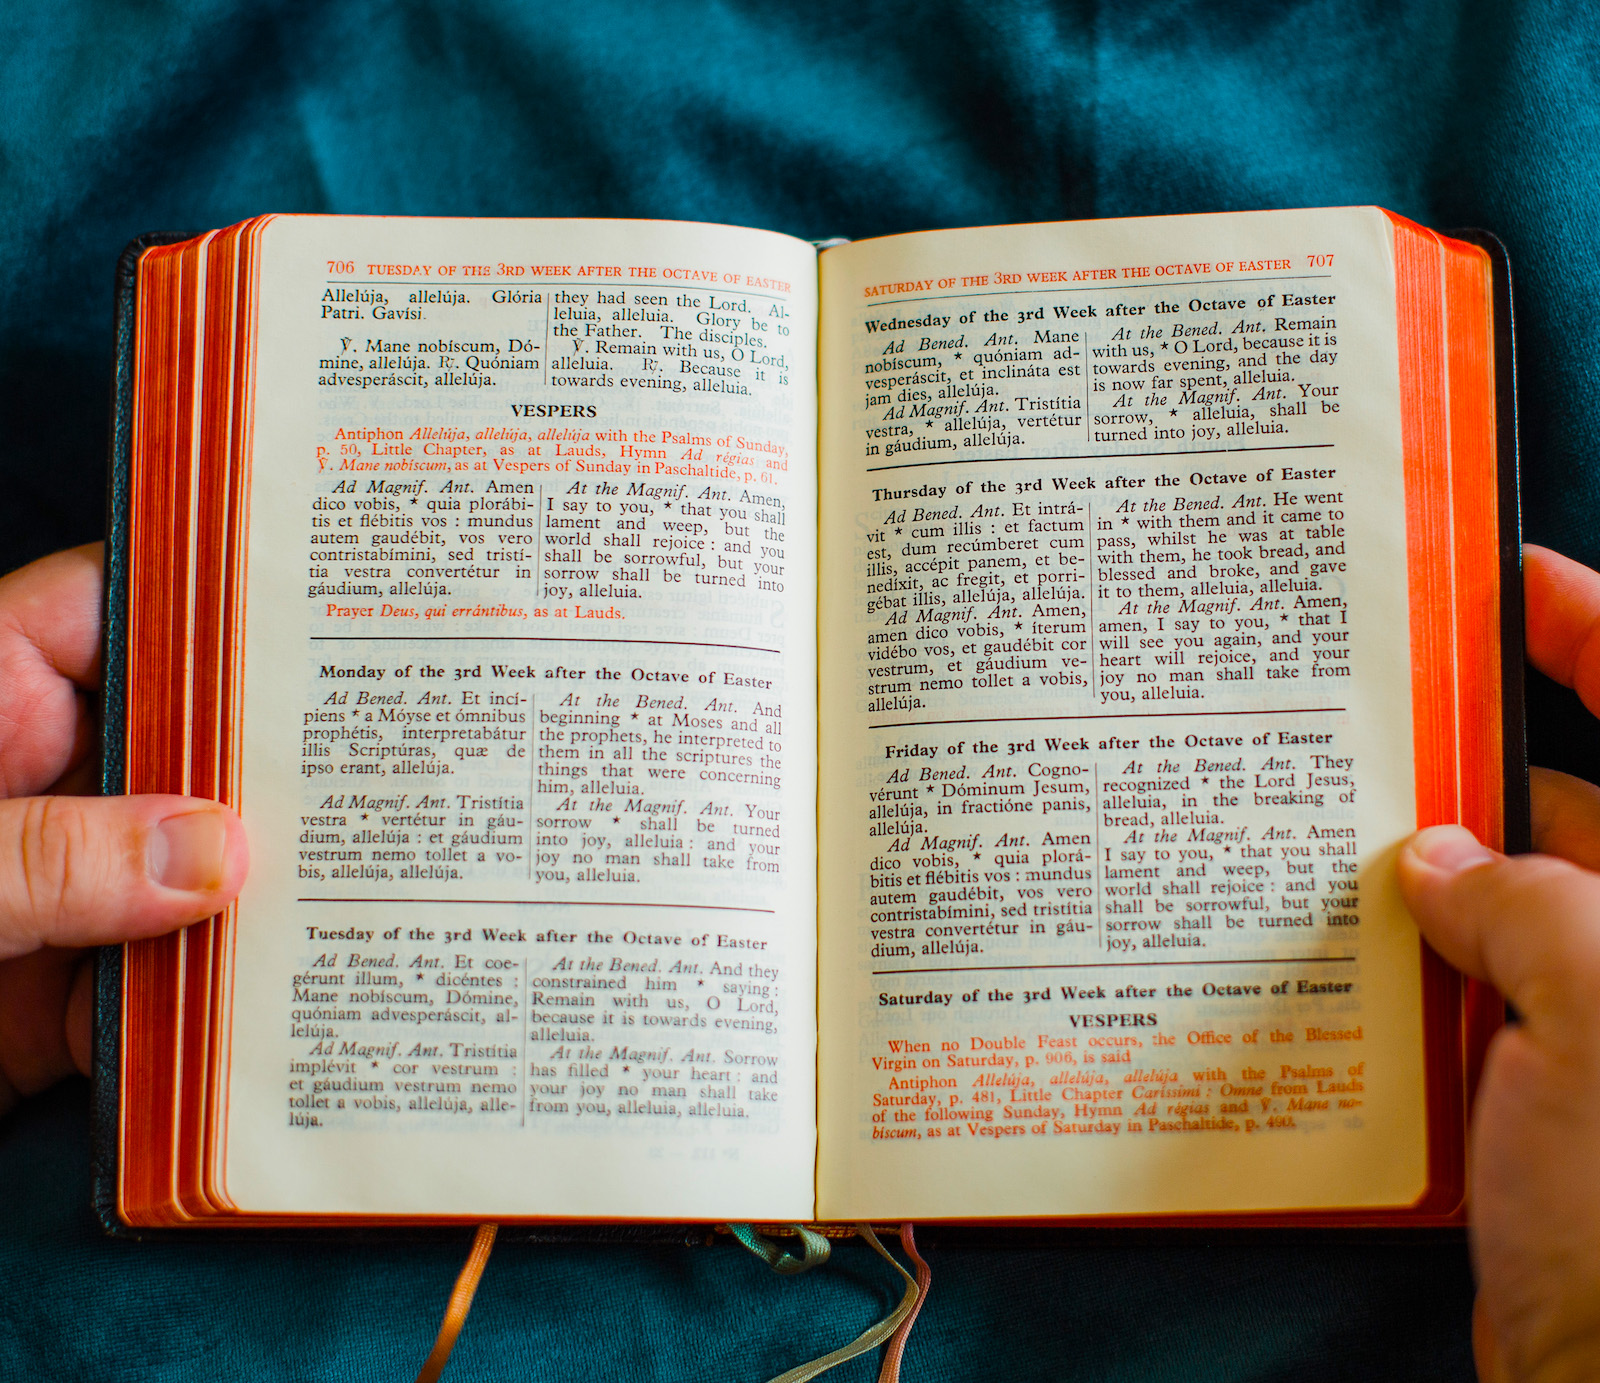 706 TUESDAY OF THE 3RD WEEK AFTER THE OCTAVE OF EASTER
Allelúja, allelúja. Glória
Patri. Gavísi.
℣. Mane nobíscum, Dó-
mine, allelúja. ℟. Quóniam
advesperáscit, allelúja.
they had seen the Lord. Al-
leluia, alleluia. Glory be to
the Father. The disciples.
℣. Remain with us, O Lord,
alleluia. ℟. Because it is
towards evening, alleluia.
VESPERS
Antiphon Allelúja, allelúja, allelúja with the Psalms of Sunday,
p. 50, Little Chapter, as at Lauds, Hymn Ad régias and
℣. Mane nobíscum, as at Vespers of Sunday in Paschaltide, p. 61.
Ad Magnif. Ant. Amen
dico vobis, * quia plorábi-
tis et flébitis vos : mundus
autem gaudébit, vos vero
contristabímini, sed tristí-
tia vestra convertétur in
gáudium, allelúja.
At the Magnif. Ant. Amen,
I say to you, * that you shall
lament and weep, but the
world shall rejoice : and you
shall be sorrowful, but your
sorrow shall be turned into
joy, alleluia.
Prayer Deus, qui errántibus, as at Lauds.
Monday of the 3rd Week after the Octave of Easter
Ad Bened. Ant. Et incí-
piens * a Móyse et ómnibus
prophétis, interpretabátur
illis Scriptúras, quæ de
ipso erant, allelúja.
Ad Magnif. Ant. Tristítia
vestra * vertétur in gáu-
dium, allelúja : et gáudium
vestrum nemo tollet a vo-
bis, allelúja, allelúja.
At the Bened. Ant. And
beginning * at Moses and all
the prophets, he interpreted to
them in all the scriptures the
things that were concerning
him, alleluia.
At the Magnif. Ant. Your
sorrow * shall be turned
into joy, alleluia : and your
joy no man shall take from
you, alleluia.
Tuesday of the 3rd Week after the Octave of Easter
Ad Bened. Ant. Et coe-
gérunt illum, * dicéntes :
Mane nobíscum, Dómine,
quóniam advesperáscit, al-
lelúja.
Ad Magnif. Ant. Tristítia
implévit * cor vestrum :
et gáudium vestrum nemo
tollet a vobis, allelúja, alle-
lúja.
At the Bened. Ant. And they
constrained him * saying :
Remain with us, O Lord,
because it is towards evening,
alleluia.
At the Magnif. Ant. Sorrow
has filled * your heart : and
your joy no man shall take
from you, alleluia, alleluia.
SATURDAY OF THE 3RD WEEK AFTER THE OCTAVE OF EASTER 707
Wednesday of the 3rd Week after the Octave of Easter
Ad Bened. Ant. Mane
nobíscum, * quóniam ad-
vesperáscit, et inclináta est
jam dies, allelúja.
Ad Magnif. Ant. Tristítia
vestra, * allelúja, vertétur
in gáudium, allelúja.
At the Bened. Ant. Remain
with us, * O Lord, because it is
towards evening, and the day
is now far spent, alleluia.
At the Magnif. Ant. Your
sorrow, * alleluia, shall be
turned into joy, alleluia.
Thursday of the 3rd Week after the Octave of Easter
Ad Bened. Ant. Et intrá-
vit * cum illis : et factum
est, dum recúmberet cum
illis, accépit panem, et be-
nedíxit, ac fregit, et porri-
gébat illis, allelúja, allelúja.
Ad Magnif. Ant. Amen,
amen dico vobis, * íterum
vidébo vos, et gaudébit cor
vestrum, et gáudium ve-
strum nemo tollet a vobis,
allelúja.
At the Bened. Ant. He went
in * with them and it came to
pass, whilst he was at table
with them, he took bread, and
blessed and broke, and gave
it to them, alleluia, alleluia.
At the Magnif. Ant. Amen,
amen, I say to you, * that I
will see you again, and your
heart will rejoice, and your
joy no man shall take from
you, alleluia.
Friday of the 3rd Week after the Octave of Easter
Ad Bened. Ant. Cogno-
vérunt * Dóminum Jesum,
allelúja, in fractióne panis,
allelúja.
Ad Magnif. Ant. Amen
dico vobis, * quia plorá-
bitis et flébitis vos : mundus
autem gaudébit, vos vero
contristabímini, sed tristítia
vestra convertétur in gáu-
dium, allelúja.
At the Bened. Ant. They
recognized * the Lord Jesus,
alleluia, in the breaking of
bread, alleluia.
At the Magnif. Ant. Amen
I say to you, * that you shall
lament and weep, but the
world shall rejoice : and you
shall be sorrowful, but your
sorrow shall be turned into
joy, alleluia.
Saturday of the 3rd Week after the Octave of Easter
VESPERS
When no Double Feast occurs, the Office of the Blessed
Virgin on Saturday, p. 906, is said
Antiphon Allelúja, allelúja, allelúja with the Psalms of
Saturday, p. 481, Little Chapter Caríssimi : Omne from Lauds
of the following Sunday, Hymn Ad régias and ℣. Mane no-
bíscum, as at Vespers of Saturday in Paschaltide, p. 490.